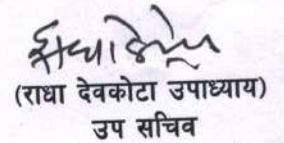 (राधा देवकोटा उपाध्याय)
उप सचिव